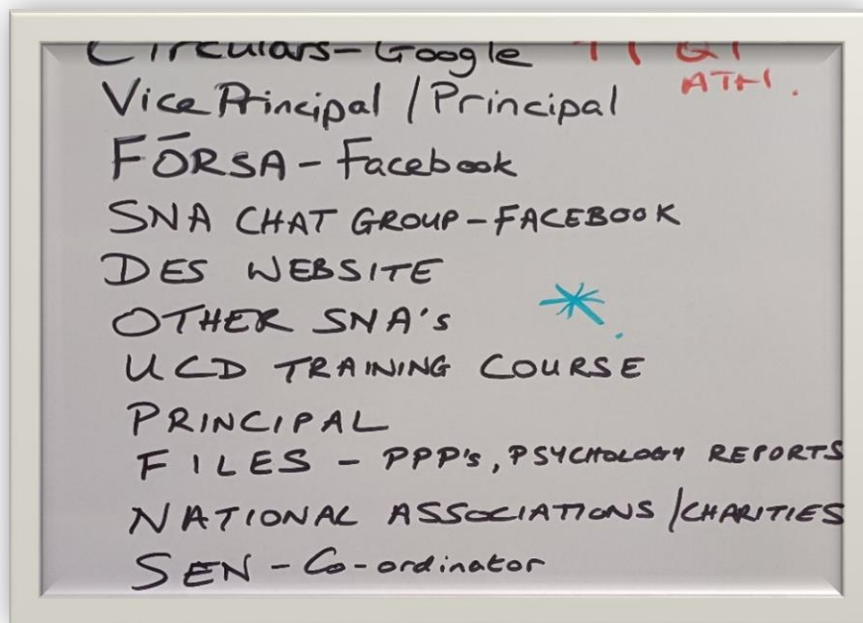 Circulars - Google
Vice Principal / Principal
FÓRSA - Facebook
SNA CHAT GROUP - FACEBOOK
DES WEBSITE
OTHER SNA's
UCD TRAINING COURSE
PRINCIPAL
FILES - PPP's, PSYCHOLOGY REPORTS
NATIONAL ASSOCIATIONS / CHARITIES
SEN - Co-ordinator